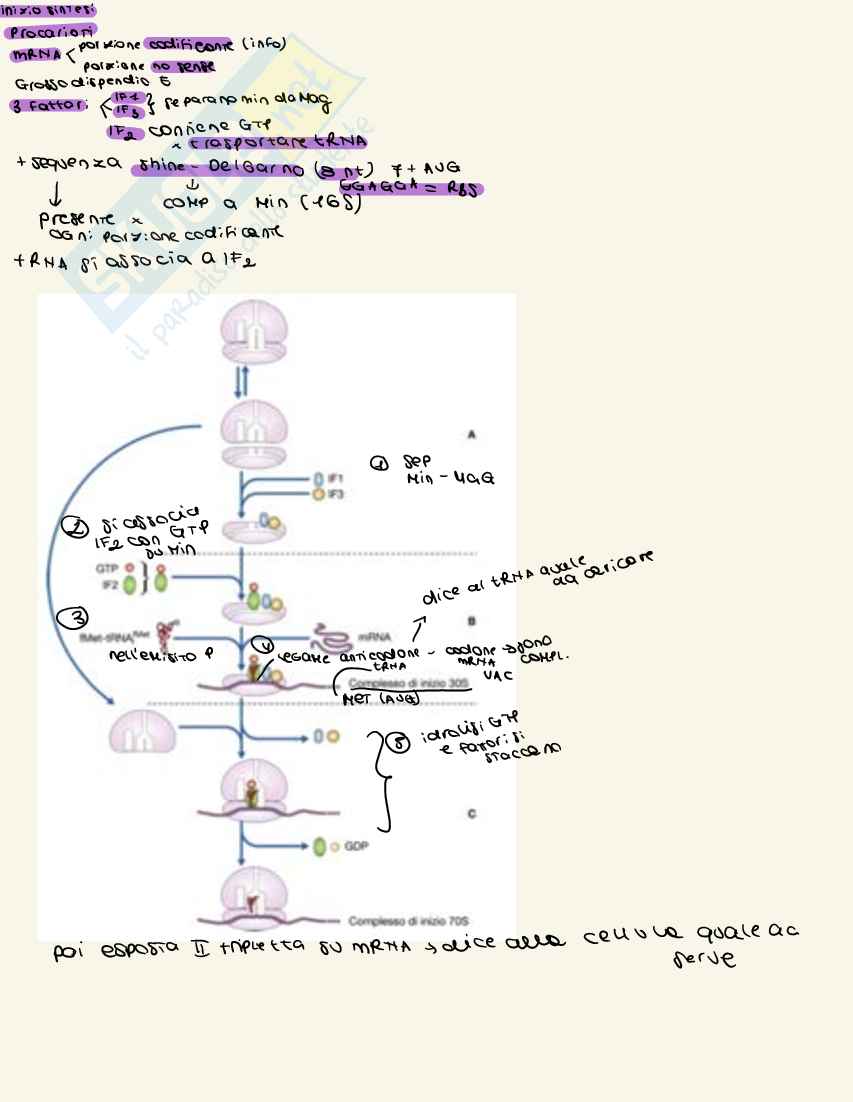 inizio sintesi
Procarioti
mRNA < porzione codificante (info)
porzione no sense
Grosso dispendio E
3 fattori < IF1 } separano min da Mag
IF3
IF2 contiene GTP
x trasportare tRNA
+ sequenza Shine - Delgarno (8 nt) 7 + AUG
↓ ↓ GGAGGA = RBS
comp a Min (16S)
presente x
ogni porzione codificante
tRNA si associa a IF2
SKUOLA.net
il paradiso dello studente
A
① sep
Min - Mag
IF1
IF3
② si associa
IF2 con GTP
su Min
GTP
IF2
dice al tRNA quale
aa caricare
③
B
fMet-tRNAfMet
mRNA
nell'emisito P
④ legame anticodone - codone → sono
tRNA mRNA compl.
UAC
Complesso di inizio 30S
MET (AUG)
⑤ idrolisi GTP
e fattori si
staccano
C
GDP
Complesso di inizio 70S
poi esposta II tripletta su mRNA → dice alla cellula quale aa
serve